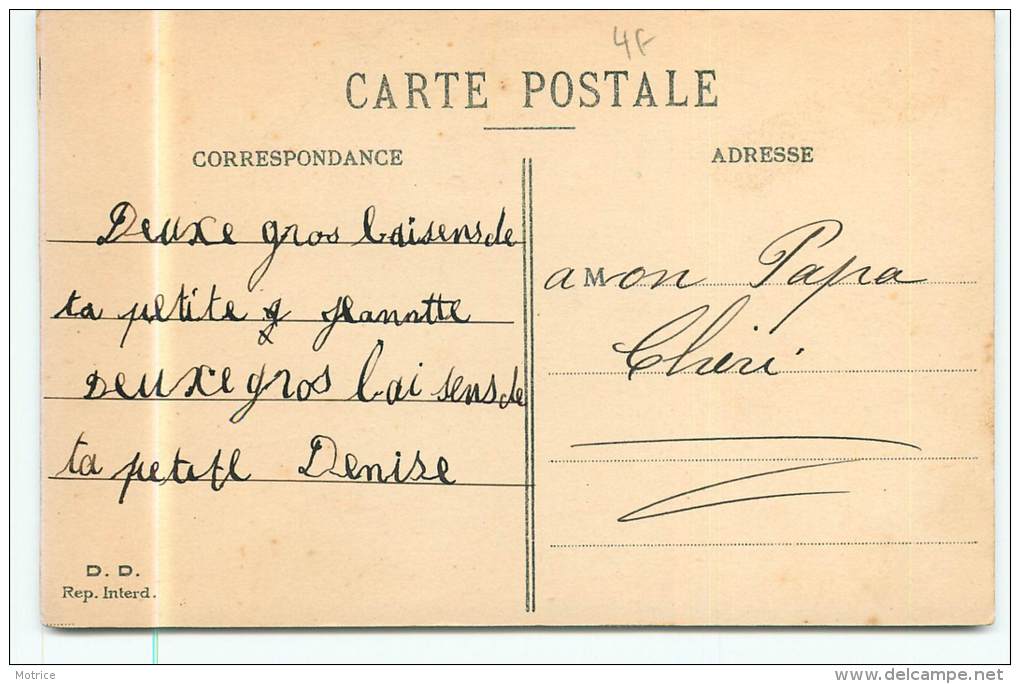 4F
CARTE POSTALE
CORRESPONDANCE
Deuxe gros baisens de
ta petite g Jeannette
Deuxe gros bai sens de
ta petite Denise
ADRESSE
a Mon Papa
Chéri
D. D.
Rep. Interd.
Motrice
delcampe.net